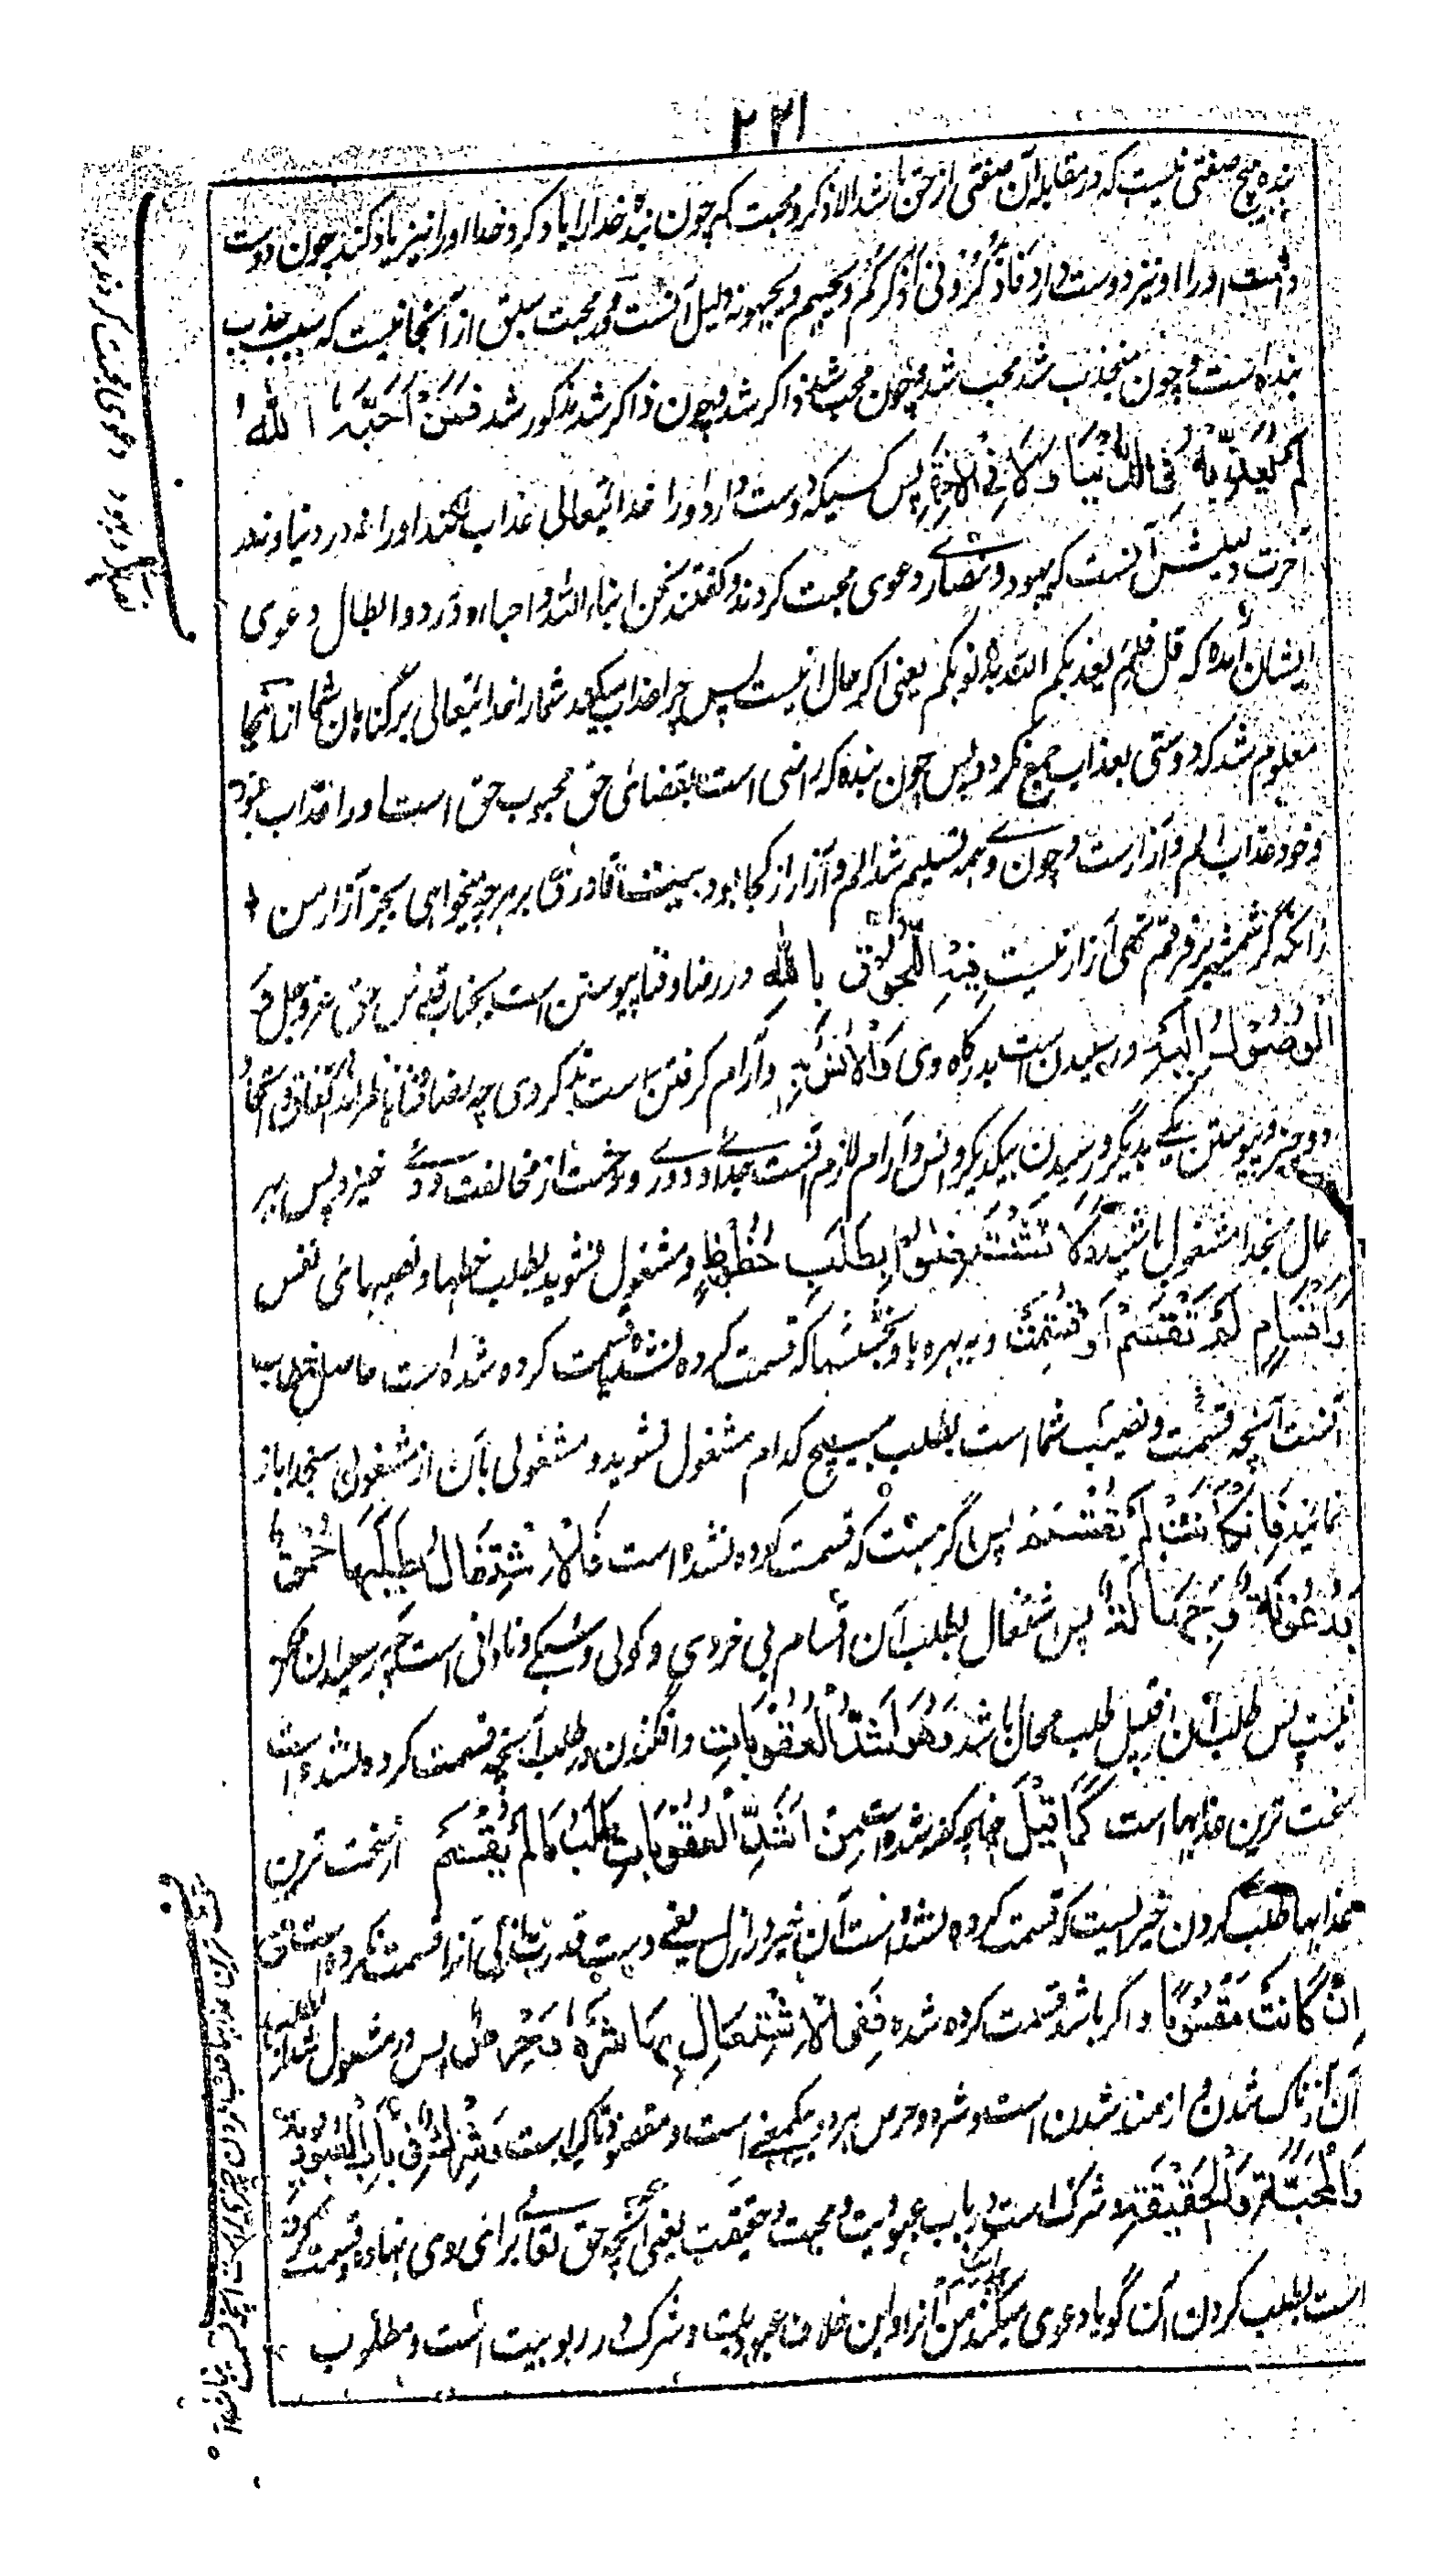 ۲۲۱
بنده هیچ صفتی نیست که در مقابله آن صفتی از حق باشد الا ذکر و محبت که چون بنده خدا را یاد کرد خدا او را نیز یاد کند چون دوست
داشت او را او نیز دوست دارد فاذکرونی اذکرکم و یحبهم و یحبونه دلیل آنست و محبت سابق از آنجانب است که سبب جذب
بنده است و چون منجذب شد محب شد و چون محب شد ذاکر شد و چون ذاکر شد مذکور شد فَمَنْ اَحَبَّهُ اللهُ
لَمْ یُعَذِّبْهُ فِی الدُّنْیَا وَ لَا فِی الْاٰخِرَةِ پس کسیکه دوست دارد او را خدایتعالی عذاب نکند او را نه در دنیا و نه در
آخرت دلیلش آنست که یهود و نصاری دعوی محبت کردند و گفتند نحن ابناء الله و احباءه و در رد و ابطال دعوی
ایشان آمده که قل فلم یعذبکم الله بذنوبکم یعنی اگر حال این است پس چرا عذاب میکند شما را خدایتعالی بر گناهان شما از اینجا
معلوم شد که دوستی بعذاب جمع نگردد پس چون بنده که راضی است بقضای حق محبوب حق است او را عذاب نبود
و خود عذاب الم و آزارست و چون همه تسلیم شد الم و آزار از کجا بود بیت قادری بر هر چه میخواهی بجز آزار من
زانکه گر شمشیر بر فرقم نهی آزار نیست فِیهِ اللُّحُوْقُ بِاللهِ و در رضا و فنا پیوستن است بجناب قدس حق عز و جل
اَلْوُصُوْلُ اِلَیْهِ و رسیدن است بدرگاه وی وَ الْاُنْسُ بِهِ و آرام گرفتن است بذکر وی چه رضا
دو چیز و پیوستن یکی بدیگر و رسیدن بیکدیگر و انس و آرام لازم آنست و دوری و وحشت از مخالفت خیزد پس بهر
حال بخدا مشغول باشید وَ لَا تَشْتَغِلُوْا بِطَلَبِ حُظُوْظٍ و مشغول نشوید بطلب حظها و نصیبهای نفس
وَ اَقْسَامٍ لَمْ تُقْسَمْ اَوْ قُسِمَتْ و به بهره ها و بخششها که قسمت کرده نشده یا قسمت کرده شده است حاصل
آنست آنچه قسمت و نصیب شما است بطلب هیچ کدام مشغول نشوید و مشغولی بآن از مشغولی بخدا باز
نمانید فَاِنْ کَانَتْ لَمْ تُقْسَمْ پس اگر هست که قسمت کرده نشده است فَالْاِشْتِغَالُ بِطَلَبِهَا حُمْقٌ
وَ رُعُوْنَةٌ وَ جَهَالَةٌ پس اشتغال بطلب آن اقسام بی خردی و گولی و سبکی و نادانی است چه رسیدن ممکن
نیست پس طلب آن از قبیل طلب محال باشد وَ هُوَ اَشَدُّ الْعُقُوْبَاتِ و افکندن در طلب آنچه قسمت کرده نشده است
سخت ترین عذابها است کَمَا قِیْلَ چنانچه گفته شده است مِنْ اَشَدِّ الْعُقُوْبَاتِ طَلَبُ مَا لَمْ یُقْسَمْ از سخت ترین
عذابها طلب کردن چیزیست که قسمت کرده نشده است آن چیز در ازل یعنی دست قدرت ازلی آنرا قسمت نکرده است
اِنْ کَانَتْ مَقْسُوْمًا و اگر باشد قسمت کرده شده فَفِی الْاِشْتِغَالِ بِهَا شَرَهٌ وَ حِرْصٌ پس در مشغول شدن
آن آزناک شدن و آزمند شدن است و شره و حرص هر دو بیک معنی است و مقصود تاکید است وَ شِرْکٌ فِی بَابِ الْعُبُوْدِیَّةِ
وَ الْمَحَبَّةِ وَ الْحَقِیْقَةِ و شرک است در باب عبودیت و محبت و حقیقت یعنی آنچه حق تعالی برای وی نهاده و قسمت کرده
است بطلب کردن آن گویا دعوی میکند آنرا و این خلاف عبودیت و شرک در ربوبیت است و مطلوب